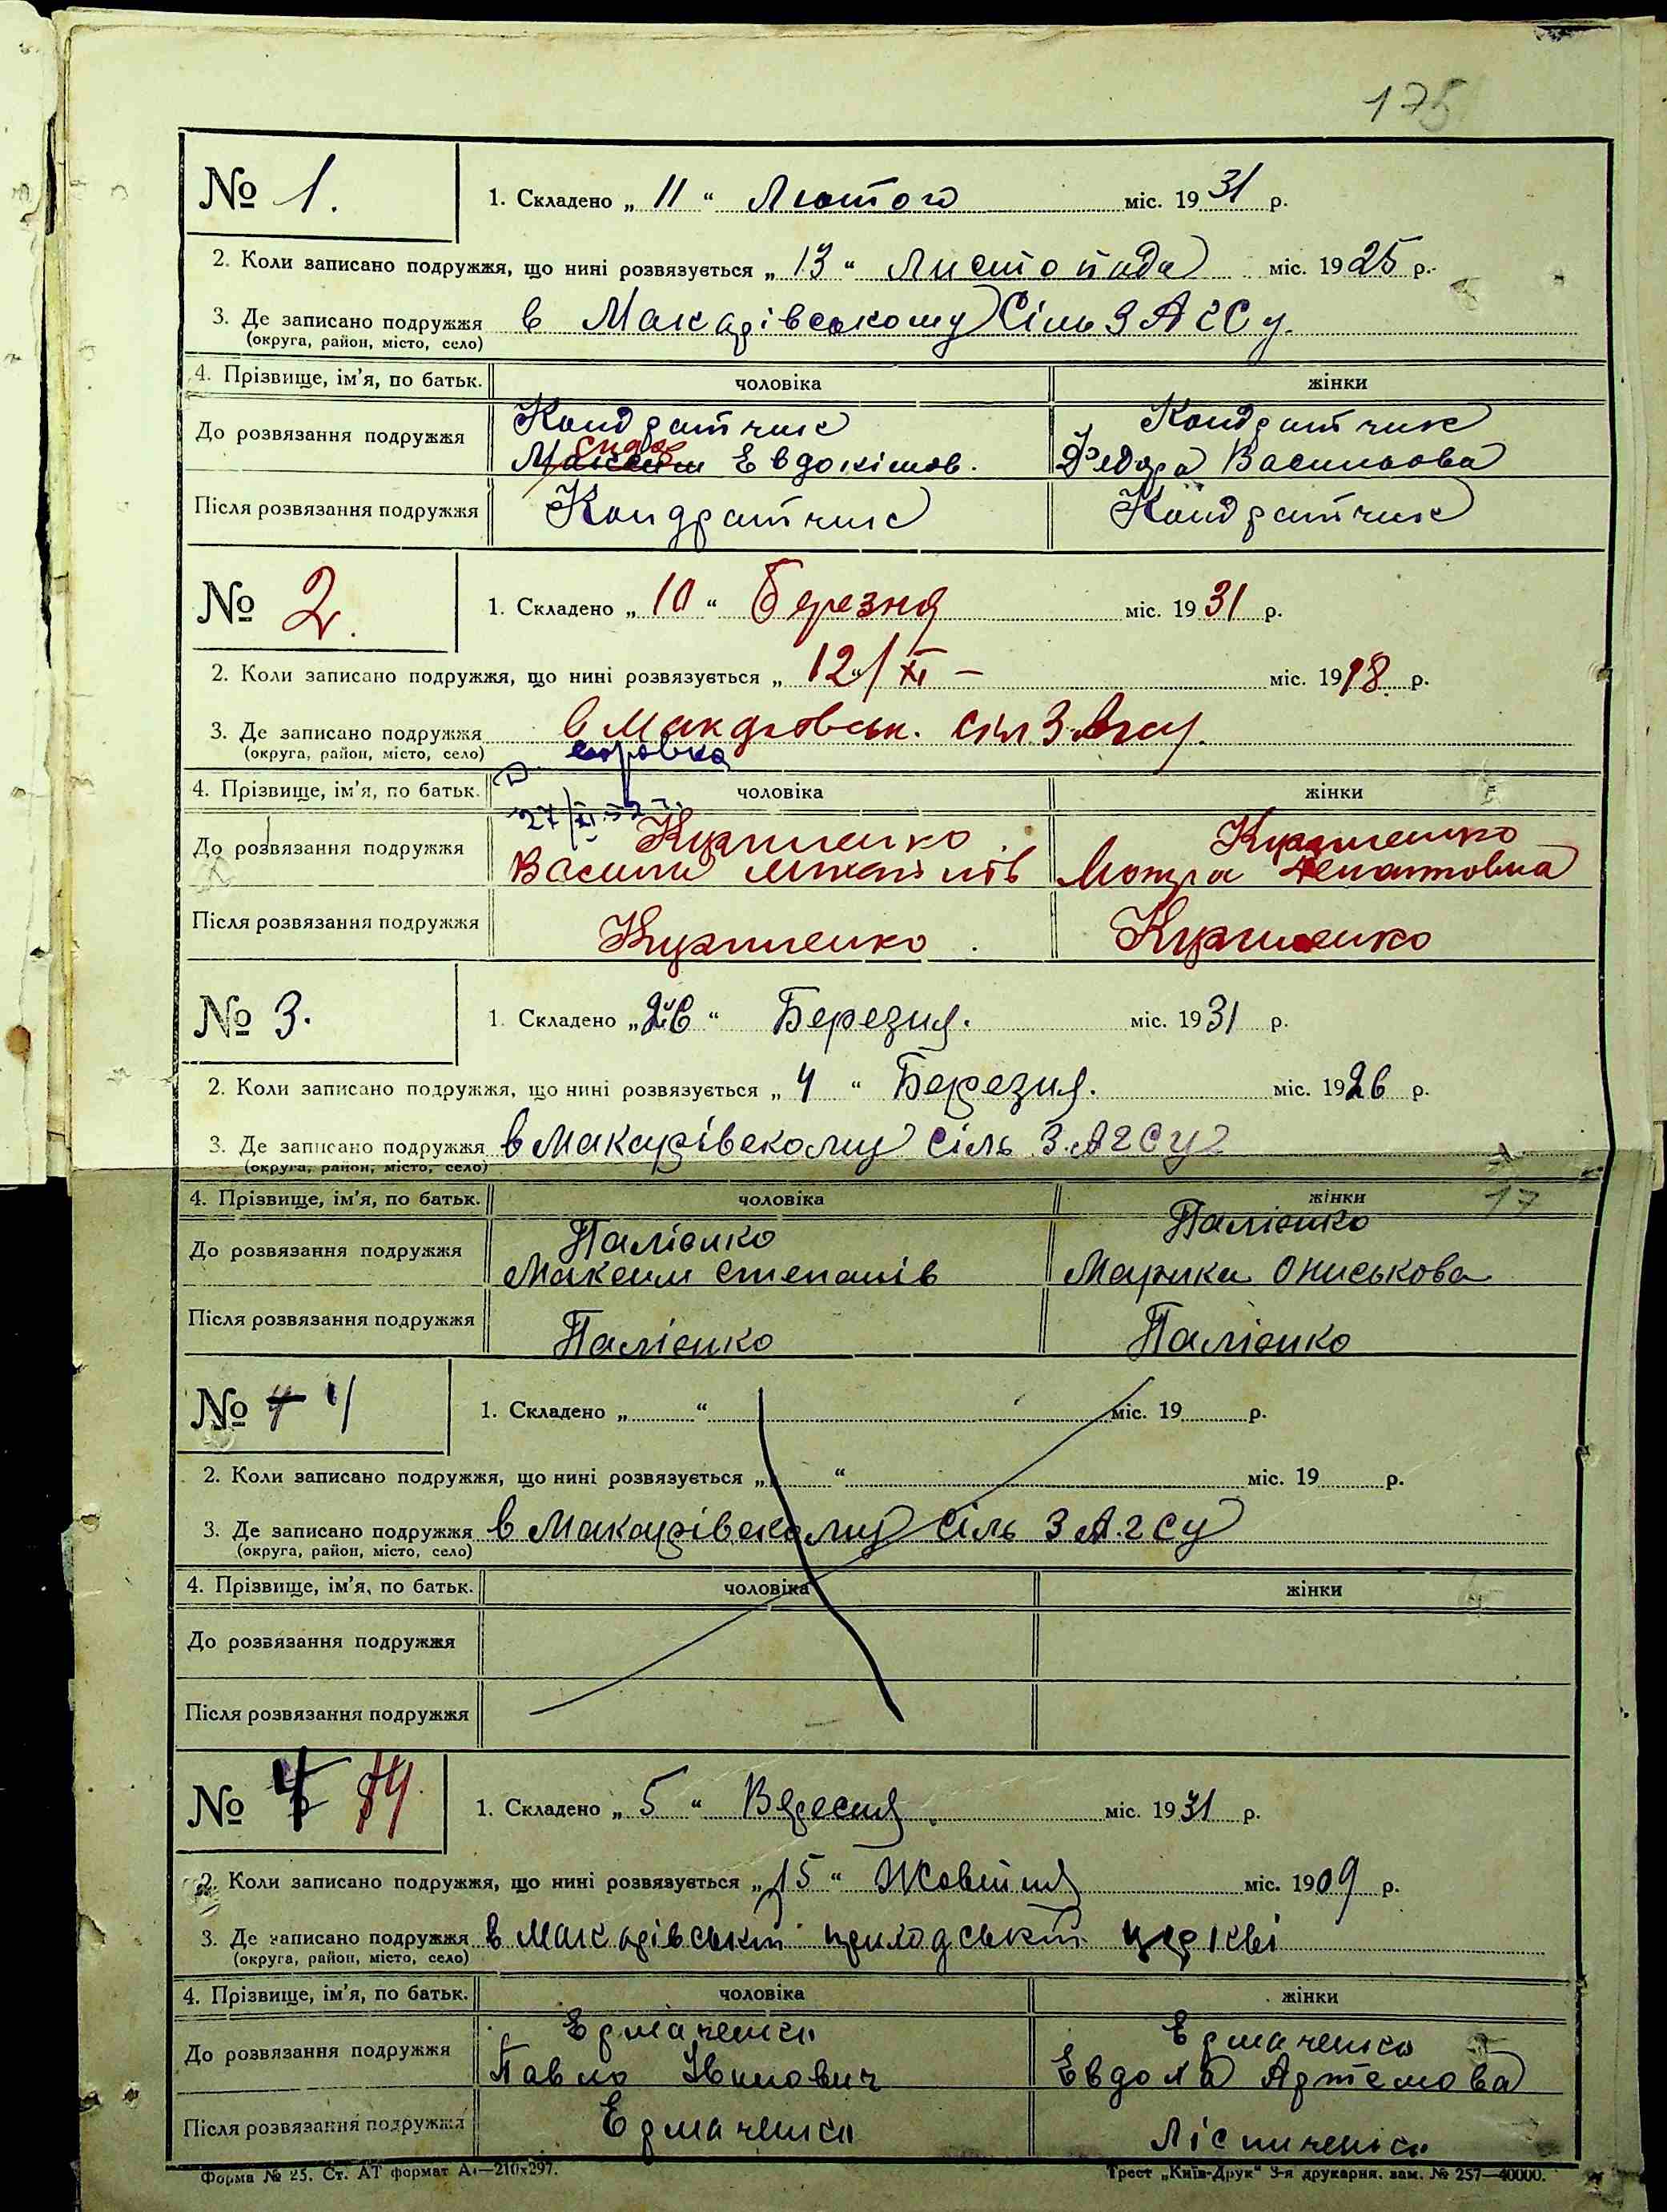 175
№ 1.
1. Складено „ 11 “ Лютого міс. 19 31 р.
2. Коли записано подружжя, що нині розвязується „ 13 “ Листопада міс. 19 25 р.
3. Де записано подружжя в Макарівському Сіль ЗАГСу.
(округа, район, місто, село)
4. Прізвище, ім'я, по батьк. чоловіка жінки
До розвязання подружжя
Кондратчик Кондратчик
Евдокімов. Федора Васильова
Після розвязання подружжя Кондратчик Кондратчик
№ 2.
1. Складено „ 10 “ Березня міс. 19 31 р.
2. Коли записано подружжя, що нині розвязується „ 12 “ / XI – міс. 19 18 р.
3. Де записано подружжя в сіл З.Агсу.
(округа, район, місто, село)
4. Прізвище, ім'я, по батьк. чоловіка жінки
До розвязання подружжя
Кузьменко Кузьменко
Василь Мотря
Після розвязання подружжя Кузьменко Кузьменко
№ 3.
1. Складено „ 26 “ Березня. міс. 19 31 р.
2. Коли записано подружжя, що нині розвязується „ 4 “ Березня. міс. 19 26 р.
3. Де записано подружжя в Макарівскому сіль З.АГСу
(округа, район, місто, село)
4. Прізвище, ім'я, по батьк. чоловіка жінки
17
До розвязання подружжя
Палієнко Палієнко
Максим Степанів Марика Ониськова
Після розвязання подружжя Палієнко Палієнко
№ 4
1. Складено „ “ міс. 19 р.
2. Коли записано подружжя, що нині розвязується „ “ міс. 19 р.
3. Де записано подружжя в Макарівскому сіль ЗА.ГСу
(округа, район, місто, село)
4. Прізвище, ім'я, по батьк. чоловіка жінки
До розвязання подружжя
Після розвязання подружжя
№ 4.
1. Складено „ 5 “ Вересня. міс. 19 31 р.
2. Коли записано подружжя, що нині розвязується „ 15 “ Жовтня міс. 19 09 р.
3. Де записано подружжя в Макарівській приходській церкві
(округа, район, місто, село)
4. Прізвище, ім'я, по батьк. чоловіка жінки
До розвязання подружжя
Ермаченко Ермаченко
Павло Іванович Евдоха Артемова
Після розвязання подружжя Ермаченко
Форма № 25. Ст. АТ формат А₄—210x297. Трест „Київ-Друк“ 9-я друкарня. зам. № 257—40000.